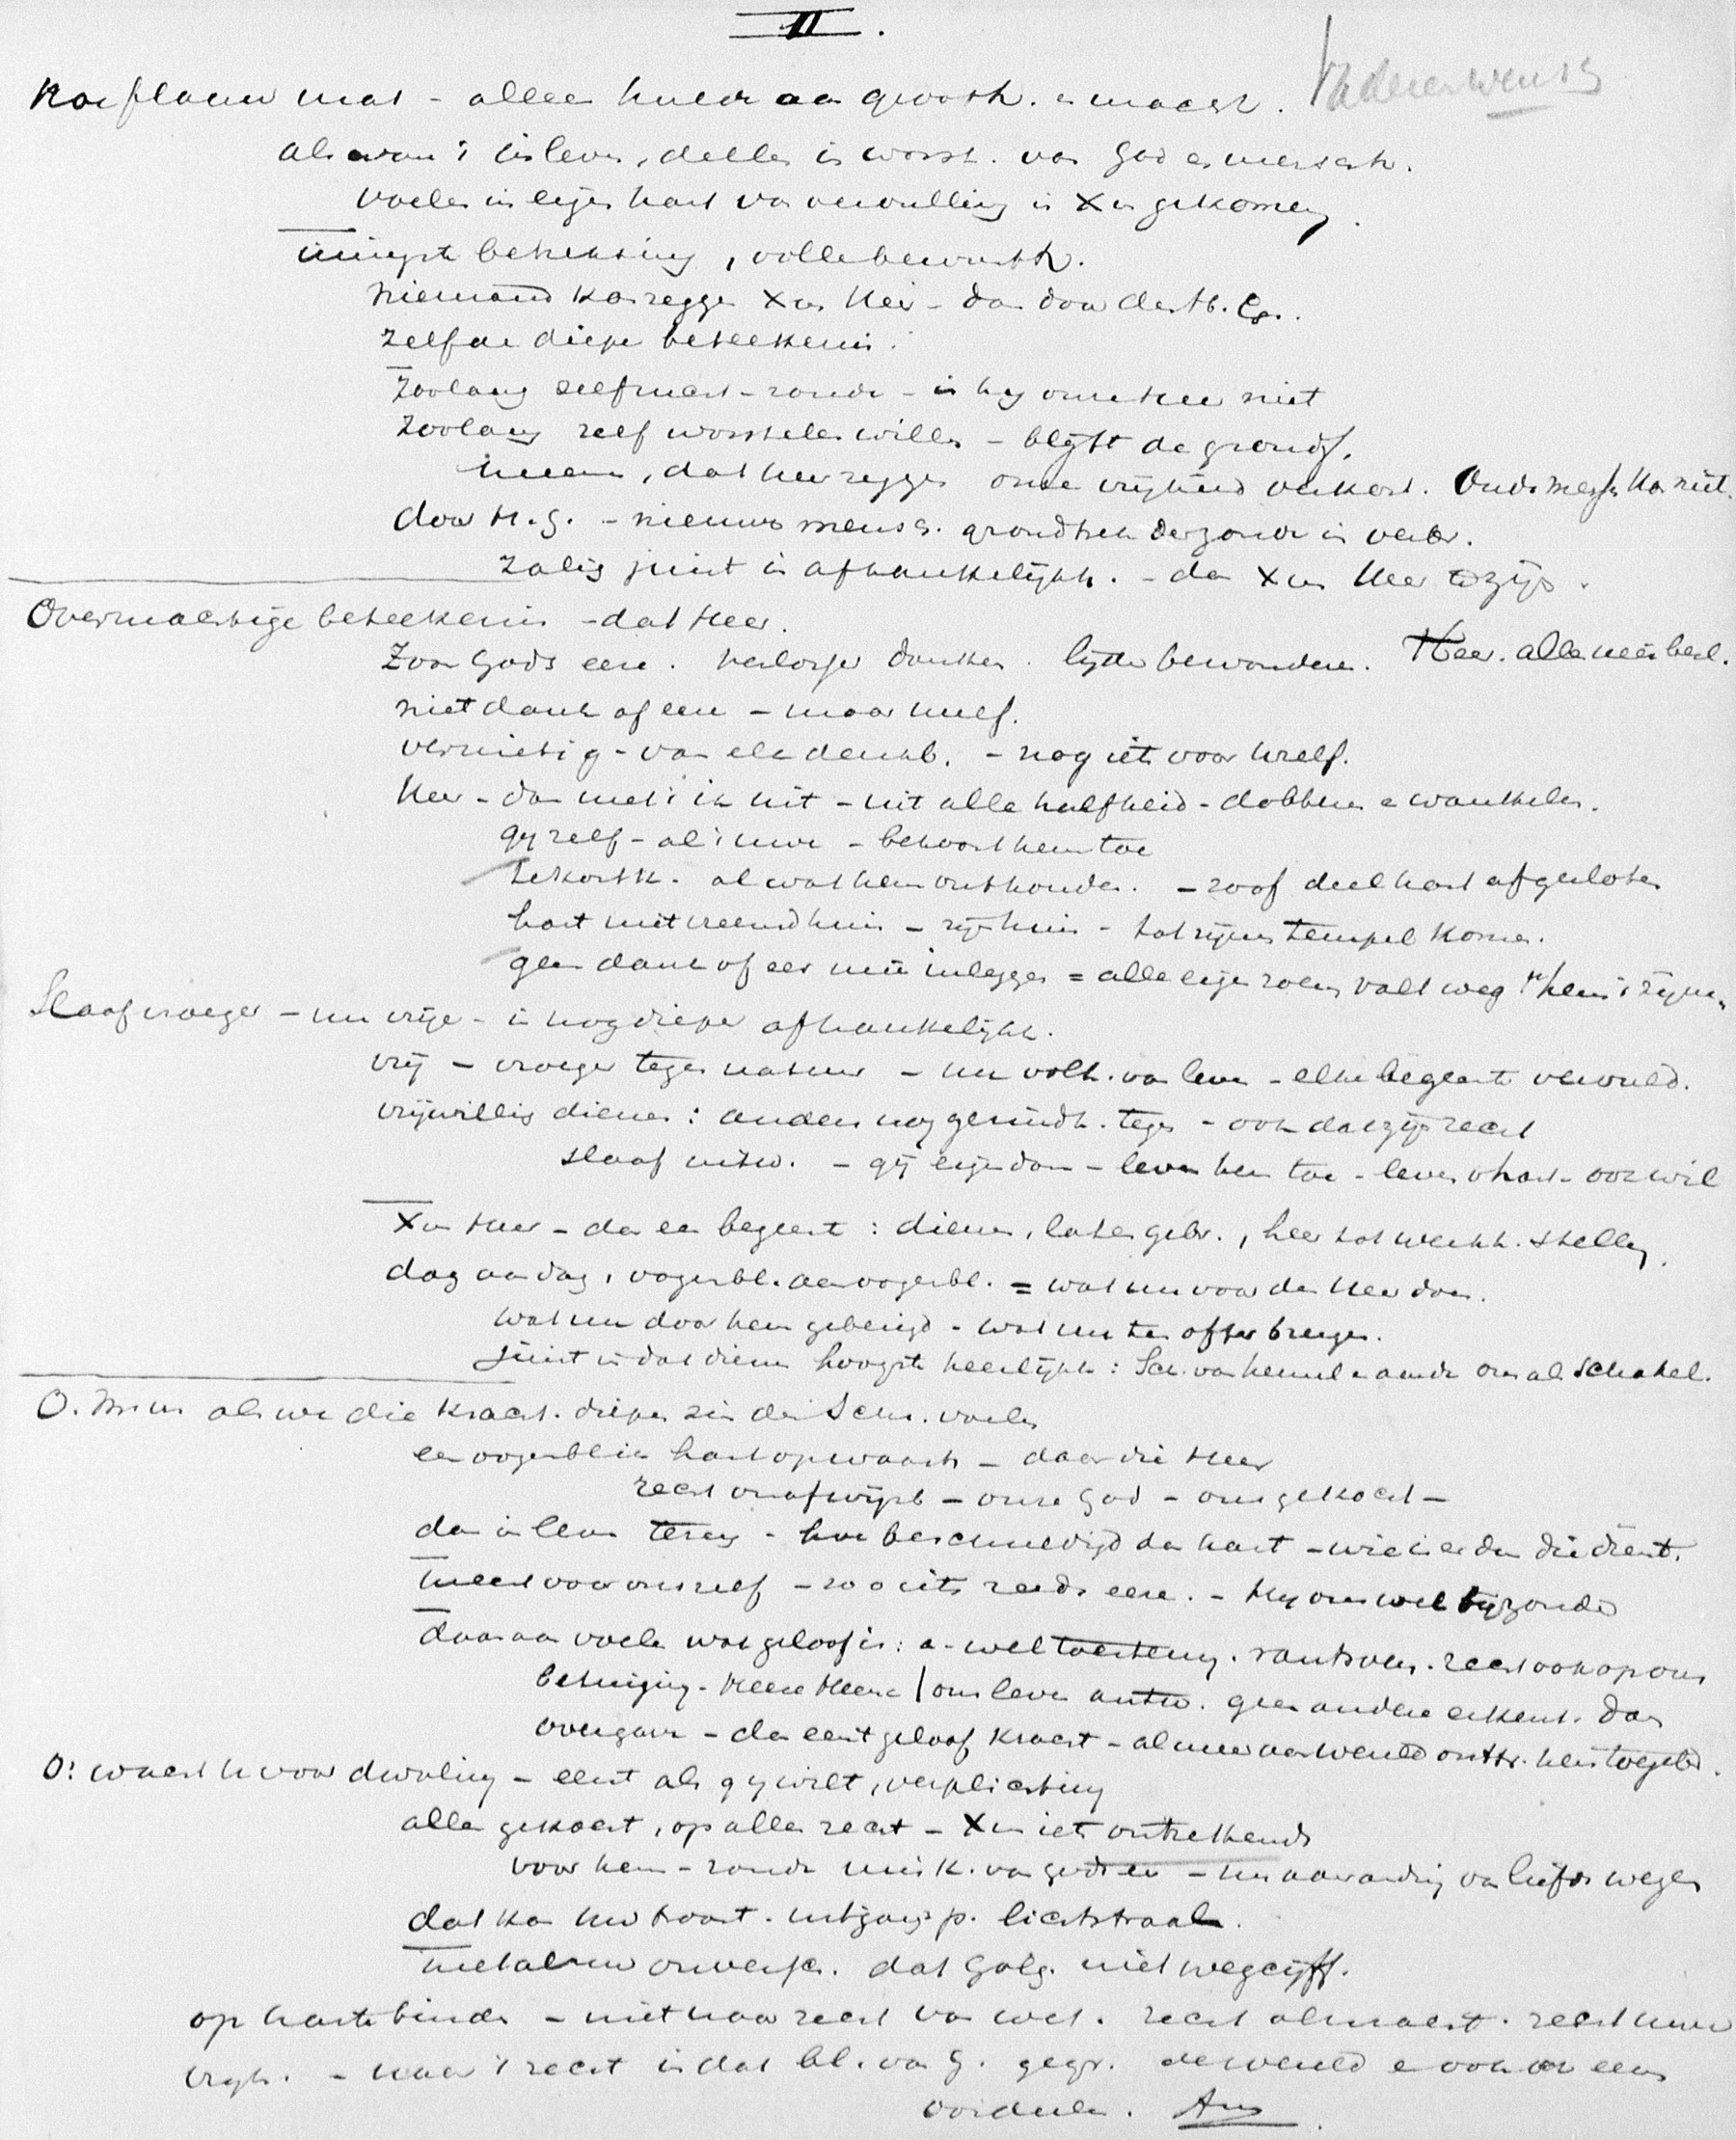 II.
Hoe flauw mat - alleen hulde aan grooth. en macht.
als van 't inleven, deelen in worst. van God en mensch.
voelen in eigen hart van vervulling in X us gekomen.
innigste betrekking, volle bewusth.
niemand kan zeggen X us Heer - dan door den H. G.
zelfde diepe beteekenis.
Zoolang zelfzucht - zonde - is hij onze Heer niet
Zoolang zelf worstelen willen - blijft de grondz.
meenen, dat heer zeggen onze vrijheid verkort. Oude mensch kan niet.
door H. G. - nieuwe mensch. grondtrek der zonde is verbr.
Zalig juist in afhankelijkh. - dan X us Heer te zijn.
Overmachtige beteekenis - dat Heer.
Zoon Gods eere. verlosser danken. lijder bewonderen. Heer. alles neerbul.
niet dank of eere - maar uzelf.
vernietig - van elk denkb. - nog iets voor uzelf.
Heer - dan met 't ik uit - uit alle halfheid - dobberen en wankelen.
gij zelf - al 't uwe - behoort hem toe
te kort k. al wat hem onthouden. - zoo of deel hart afgesloten
hart niet vreemd huis - zijn huis - tot zijnen tempel komen.
geen dank of eer mee inleggen = alle eigen roem valt weg hem 't zijne.
Slaaf vroeger - nu vrije - in nog dieper afhankelijkh.
vrij - vroeger tegen natuur - nu volh. van leven - elke begeerte vervuld.
vrijwillig dienen: anders nog gezindh. tegen - ook dat zijn recht
slaaf uitw. - gij eigendom - leven hem toe - leven v hart - oor wil
X us Heer - dan een begeert: dienen, laten gebr., heer tot werkk. stellen.
dag aan dag, oogenbl. aan oogenbl. = wat nu voor den Heer doen.
wat nu door hem gebeurd - wat nu ten offer brengen.
juist in dat dienen hoogste heerlijkh: Sch. van hemel en aarde ons als schakel.
O. M. m. als we die kracht. dieper zin der Schr. voelen
een oogenblik hart opwaarts - daar die Heer
recht onafwijsb - onze God - ons gekocht -
dan in leven terug - hoe beschuldigd dan hart - wie is er dan die dient.
meest voor ons zelf - zoo iets reeds eere. - Hij ons wel bijzonder
daaraan voelen wat geloof is: a - wel toestemg. ... recht ook op ons
betuiging - Heere Heere / ons leven antw. geen andere erkent. dan
overgave - dan eerst geloof kracht - al meer aan wereld onttr. hem toegebr.
O! wacht u voor dwaling - eerst als gij wilt, verplichting
allen gekocht, op allen recht - X us iets onttrekkends
voor hem - zonde misk. van godh. en - nu aanranding van liefde wegen
dat kan uw troost. uitgangsp. lichtstraal.
met al uw onwerp. dat Golg. niet wegcijff.
op harte binde - niet naar recht van wet. recht almacht. recht uwe
vrijh. - maar 't recht in dat bl. van G. gegr. de wereld en ook ons eens
oordeelen. Am